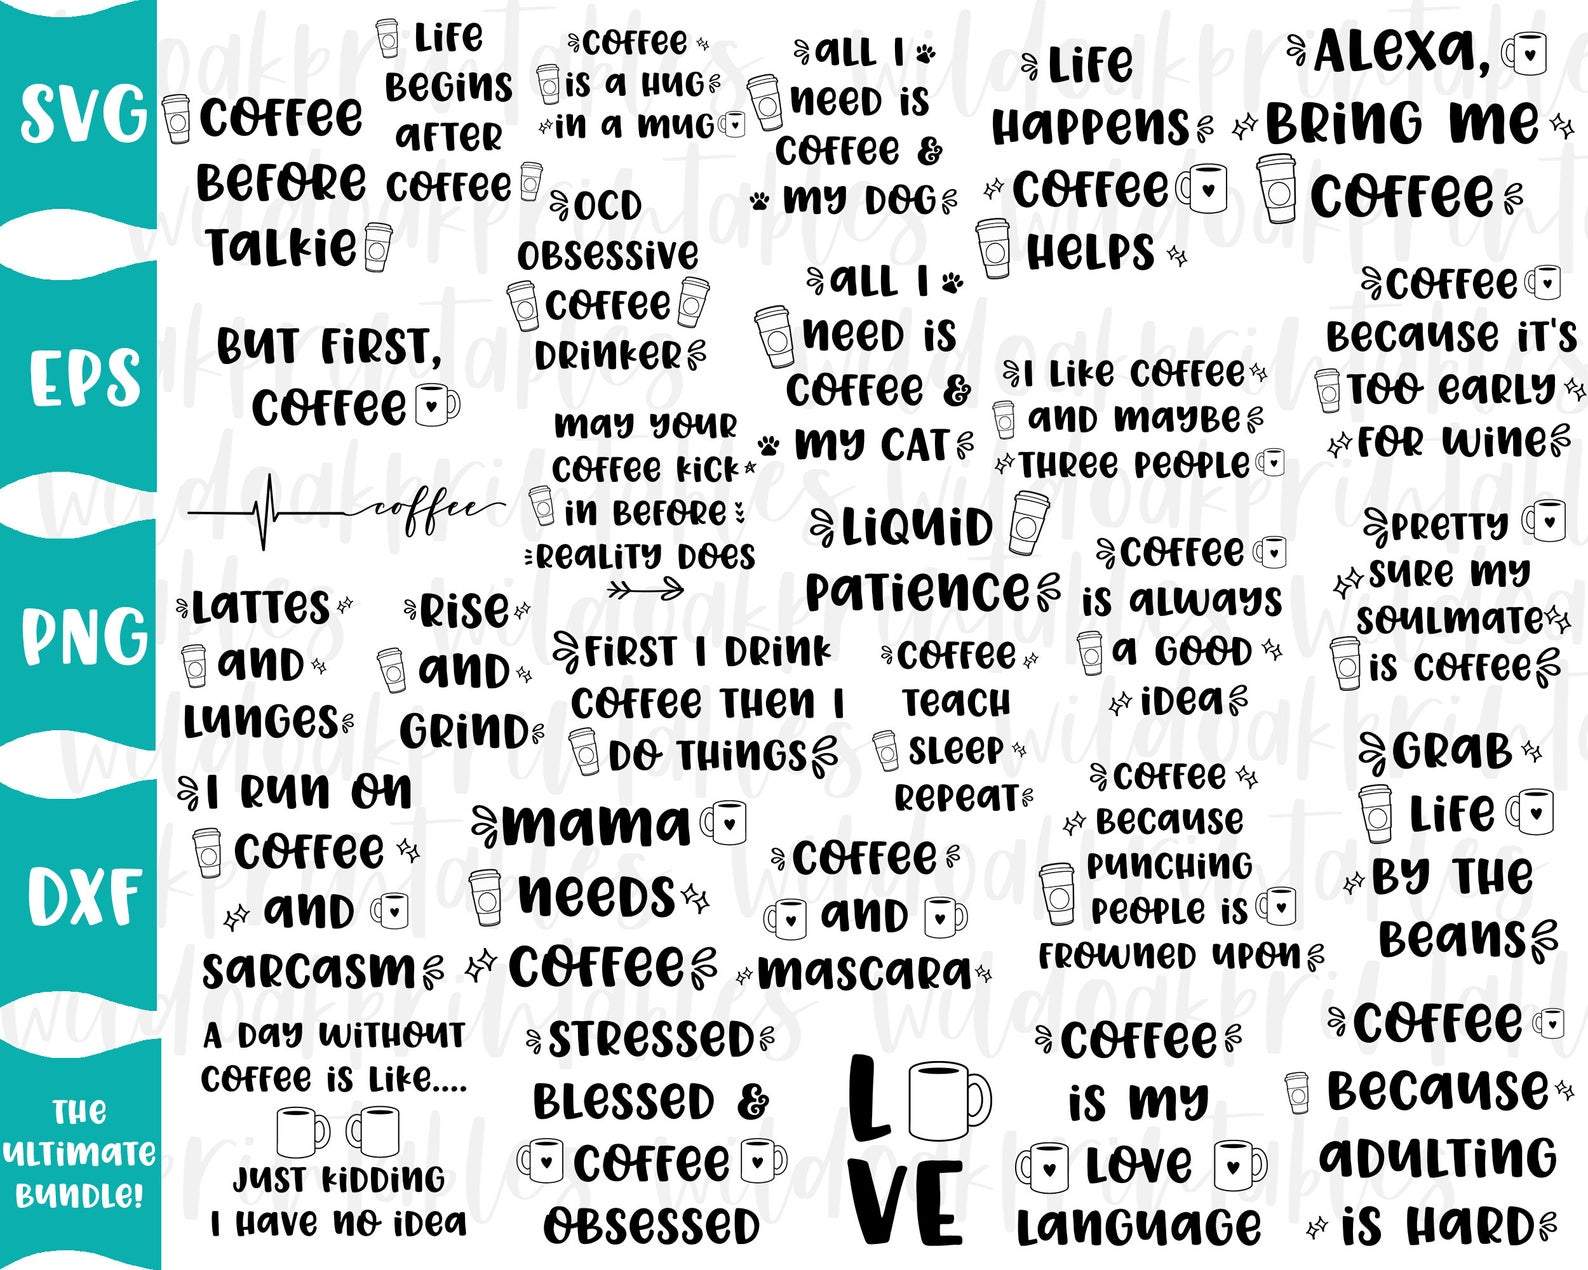 SVG
EPS
PNG
DXF
THE
ULTIMATE
BUNDLE!
COFFEE
BEFORE
TALKIE
LIFE
BEGINS
AFTER
COFFEE
COFFEE
IS A HUG
IN A MUG
ALL I
NEED IS
COFFEE &
MY DOG
LIFE
HAPPENS
COFFEE
HELPS
ALEXA,
BRING ME
COFFEE
BUT FIRST,
COFFEE
OCD
OBSESSIVE
COFFEE
DRINKER
ALL I
NEED IS
COFFEE &
MY CAT
I LIKE COFFEE
AND MAYBE
THREE PEOPLE
COFFEE
BECAUSE IT'S
TOO EARLY
FOR WINE
coffee
MAY YOUR
COFFEE KICK
IN BEFORE
REALITY DOES
LIQUID
PATIENCE
COFFEE
IS ALWAYS
A GOOD
IDEA
PRETTY
SURE MY
SOULMATE
IS COFFEE
LATTES
AND
LUNGES
RISE
AND
GRIND
FIRST I DRINK
COFFEE THEN I
DO THINGS
COFFEE
TEACH
SLEEP
REPEAT
GRAB
LIFE
BY THE
BEANS
I RUN ON
COFFEE
AND
SARCASM
MAMA
NEEDS
COFFEE
COFFEE
AND
MASCARA
COFFEE
BECAUSE
PUNCHING
PEOPLE IS
FROWNED UPON
A DAY WITHOUT
COFFEE IS LIKE....
JUST KIDDING
I HAVE NO IDEA
STRESSED
BLESSED &
COFFEE
OBSESSED
L
VE
COFFEE
IS MY
LOVE
LANGUAGE
COFFEE
BECAUSE
ADULTING
IS HARD
wildoakprintables